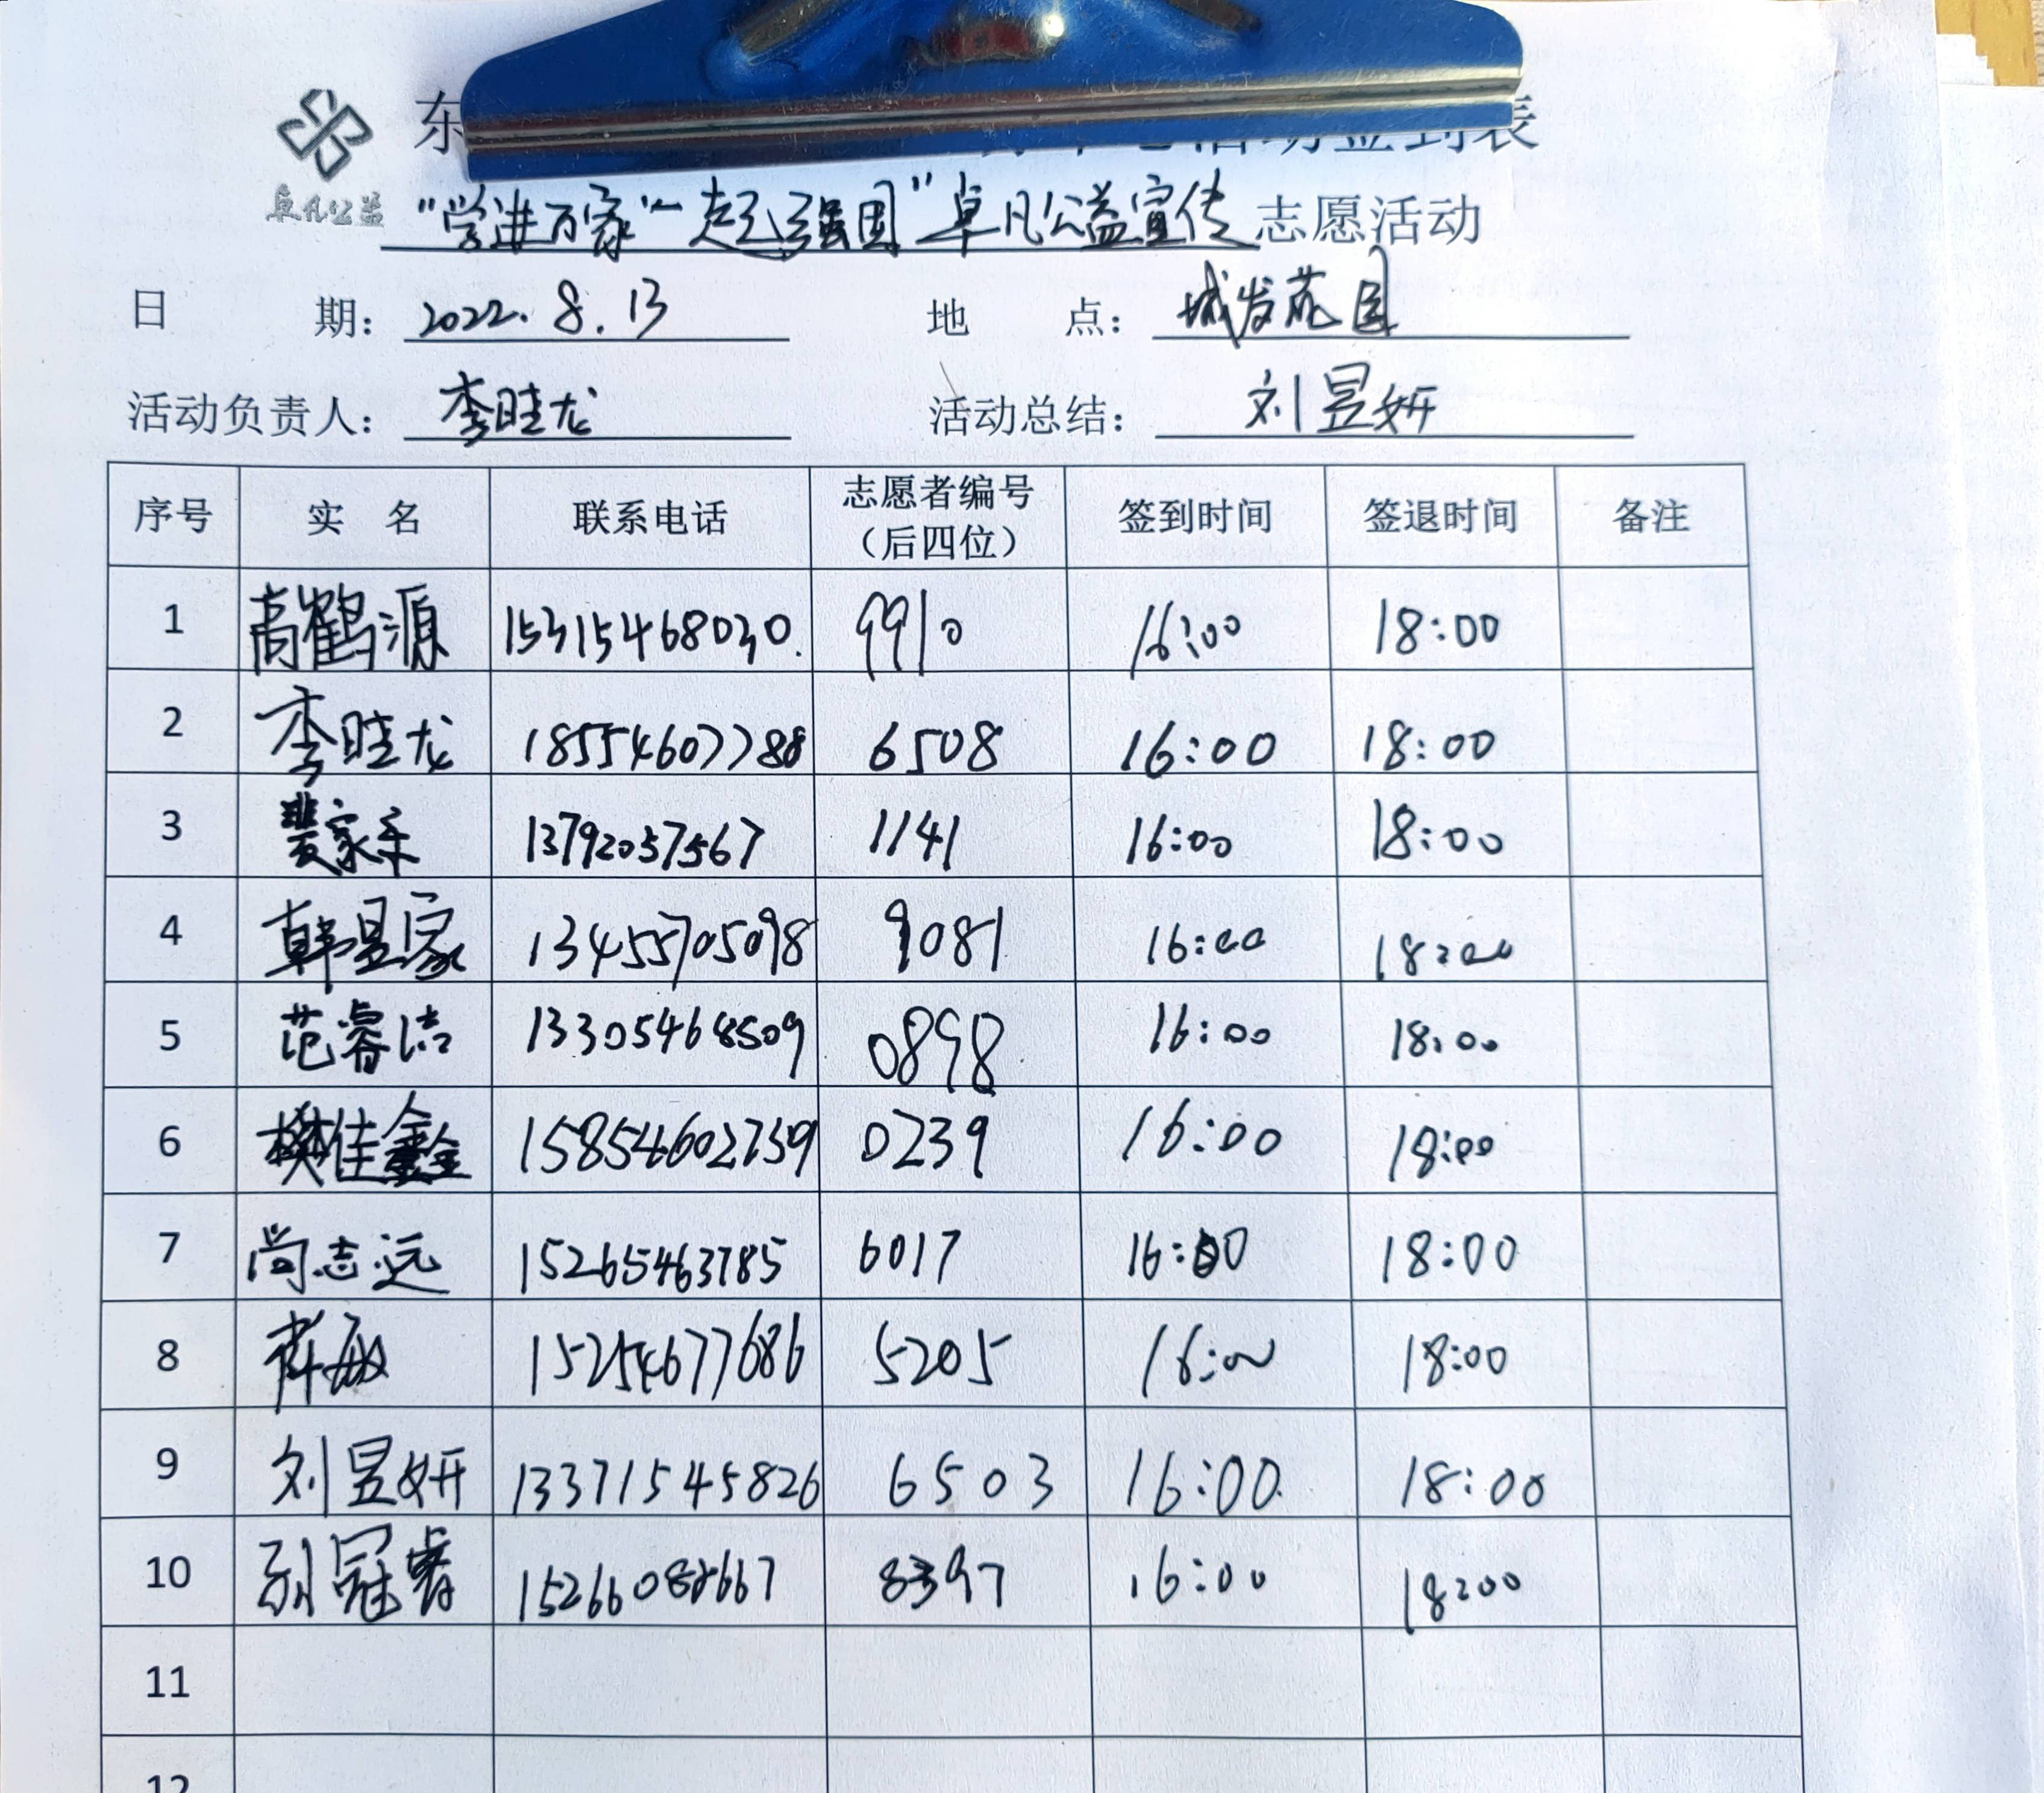 东 活动签到表
卓凡公益
“学进万家 一起强国”卓凡公益宣传 志愿活动
日 期： 2022.8.13 地 点： 城发花园
活动负责人： 李晆龙 活动总结： 刘昱妍
序号 实 名 联系电话 志愿者编号（后四位） 签到时间 签退时间 备注
1 高鹤源 15315468030. 9910 16:00 18:00
2 李晆龙 18554607788 6508 16:00 18:00
3 裴家 13792057567 1141 16:00 18:00
4 韩昱家 13455705098 9081 16:00 18:00
5 范睿洁 13305468509 0898 16:00 18:00
6 樊佳鑫 15854602739 0239 16:00 18:00
7 尚志远 15265463785 6017 16:00 18:00
8 敏 15254677686 5205 16:00 18:00
9 刘昱妍 13371545826 6503 16:00 18:00
10 孙冠睿 15266088667 8397 16:00 18:00
11
12